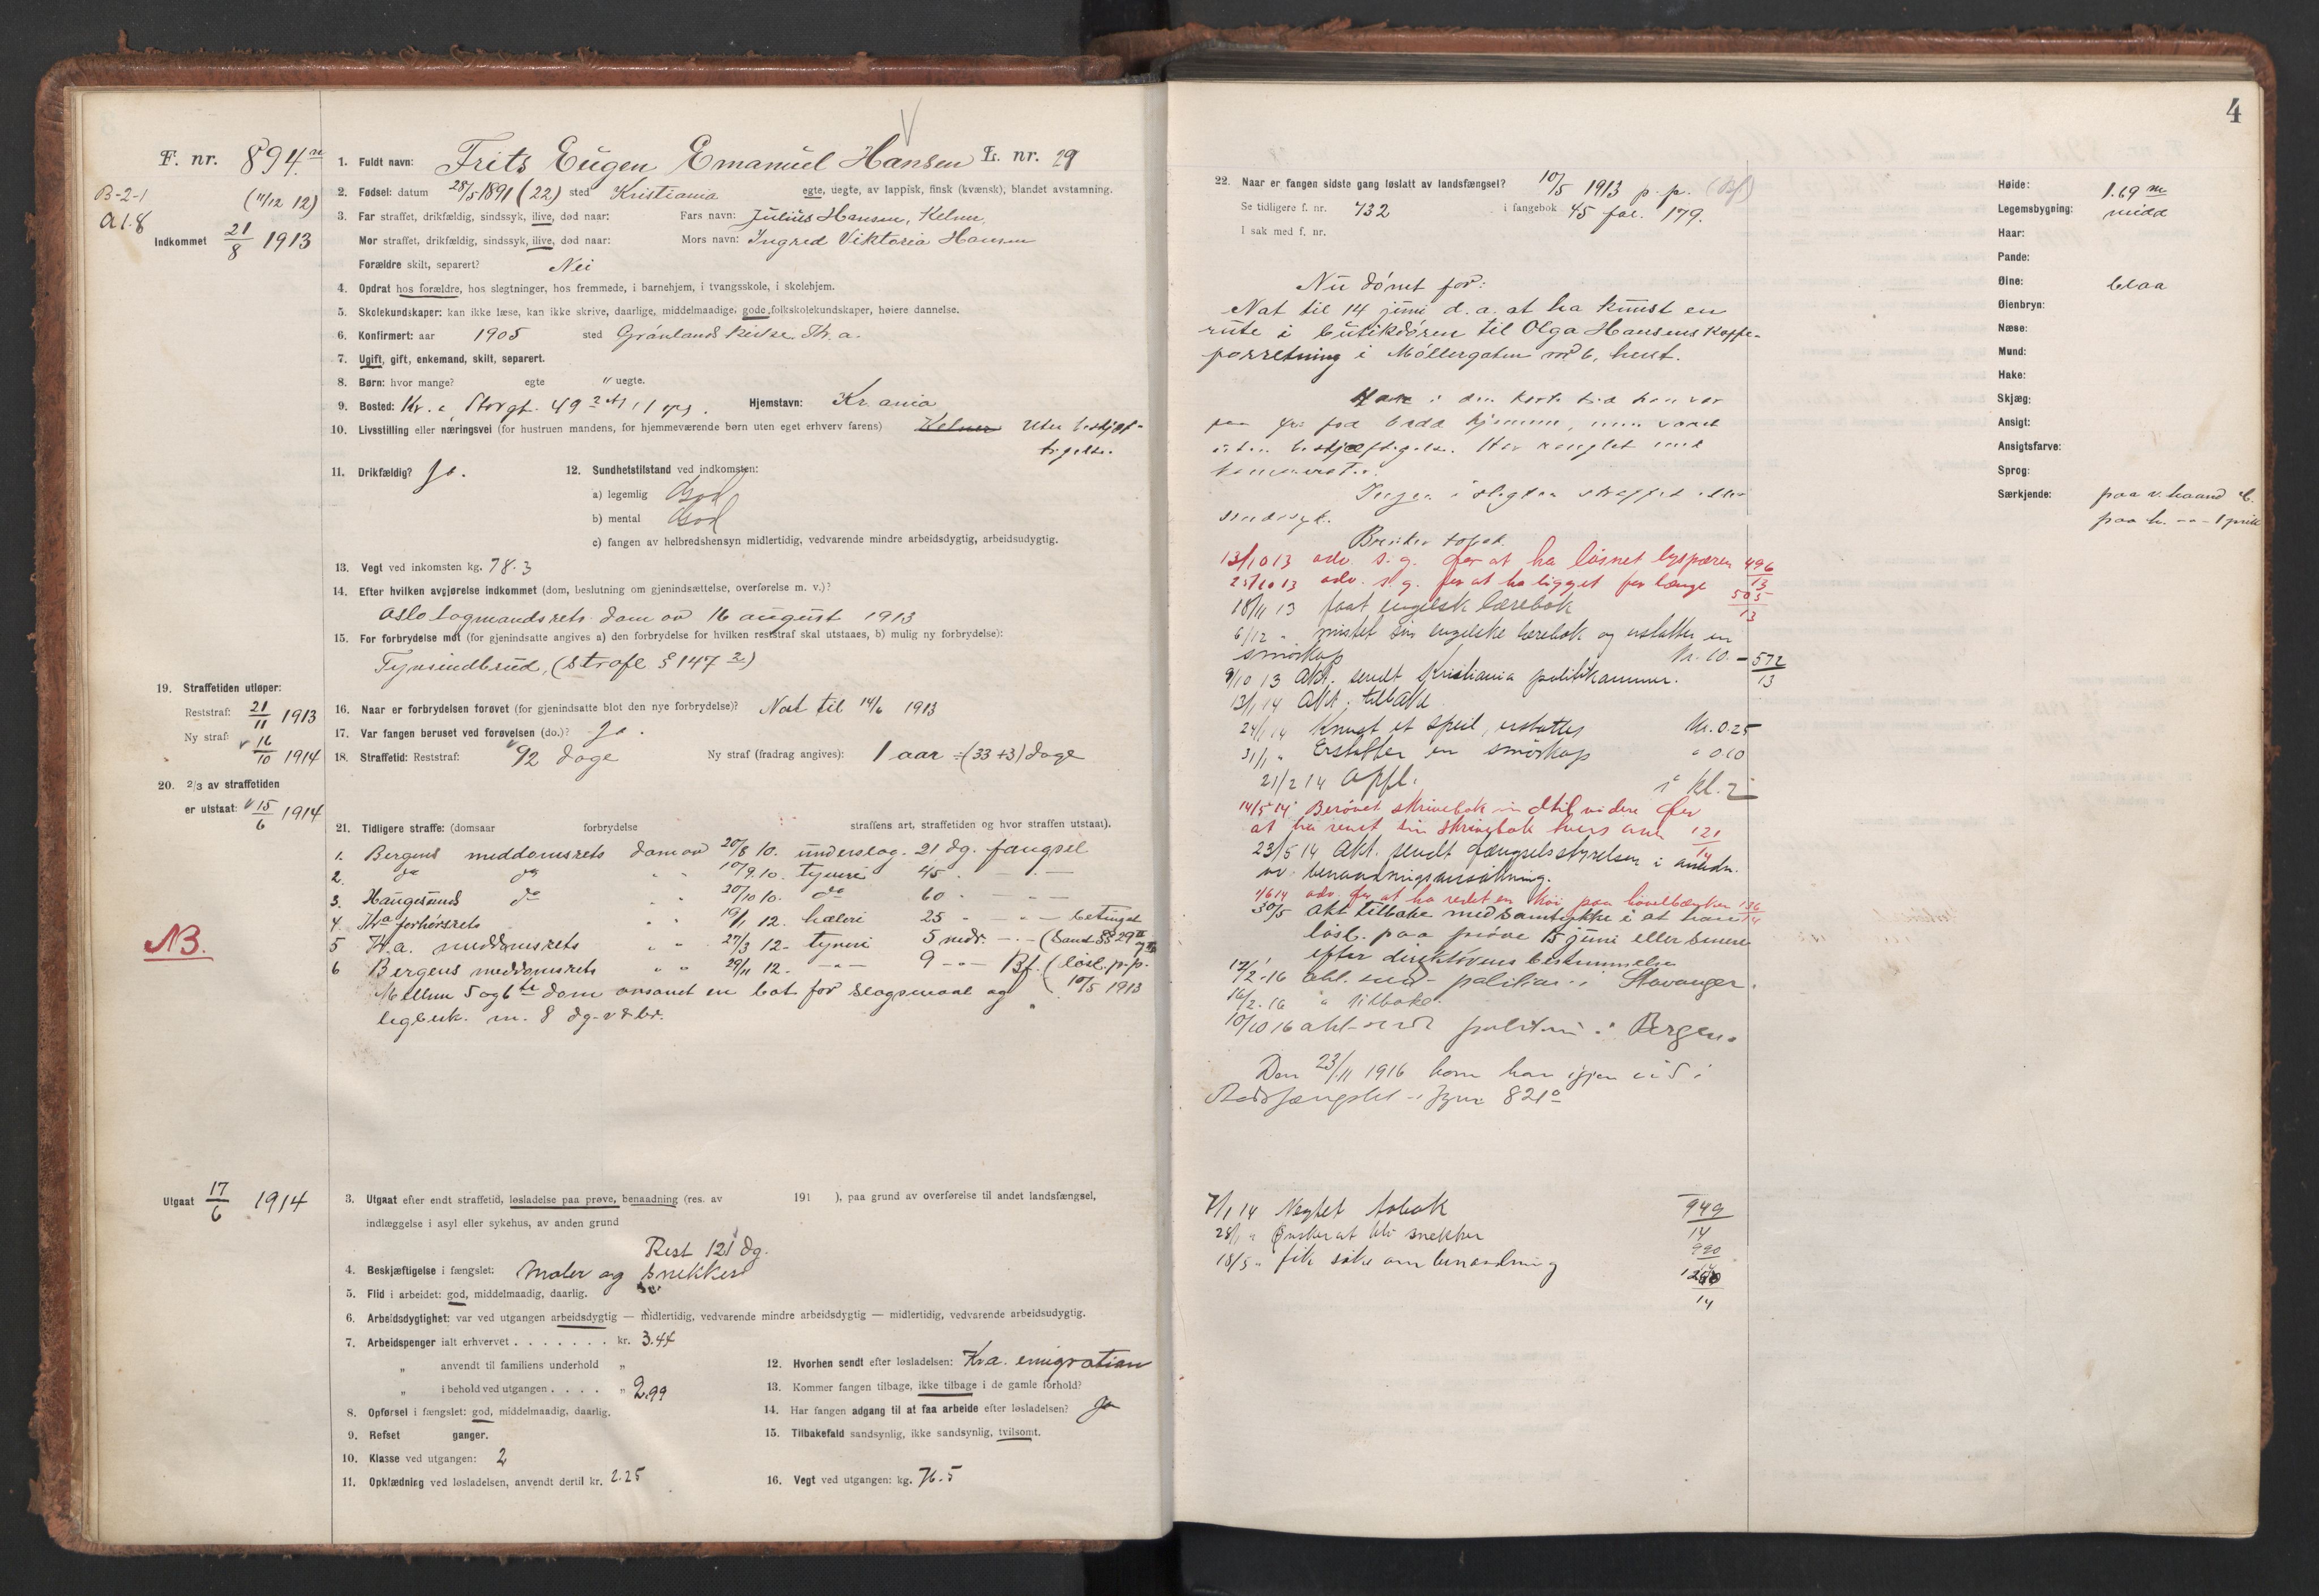 F. nr. 894
B-2-1
(11/12 12)
A 1-8
Indkommet 21/8 1913
1. Fuldt navn: Frits Eugen Emanuel Hansen L. nr. 29
2. Fødsel: datum 28/5 1891 (22) sted Kristiania egte, uegte, av lappisk, finsk (kvænsk), blandet avstamning.
3. Far straffet, drikfældig, sindssyk, ilive, død naar: Fars navn: Julius Hansen, Kelner
Mor straffet, drikfældig, sindssyk, ilive, død naar: Mors navn: Ingred Viktoria Hansen
Forældre skilt, separert? Nei
4. Opdrat hos forældre, hos slegtninger, hos fremmede, i barnehjem, i tvangsskole, i skolehjem.
5. Skolekundskaper: kan ikke læse, kan ikke skrive, daarlige, middelmaadige, gode folkskolekundskaper, høiere dannelse.
6. Konfirmert: aar 1905 sted Grønlands kirke Kr. a.
7. Ugift, gift, enkemand, skilt, separert.
8. Børn: hvor mange? egte " uegte.
9. Bosted: Kr. a, Storgt. 49 Hjemstavn: Kr. ania
10. Livsstilling eller næringsvei (for hustruen mandens, for hjemmeværende børn uten eget erhverv farens) Kelner Uten beskjæf-
tigelse.
11. Drikfældig? Ja. 12. Sundhetstilstand ved indkomsten:
a) legemlig God
b) mental God
c) fangen av helbredshensyn midlertidig, vedvarende mindre arbeidsdygtig, arbeidsudygtig.
13. Vegt ved inkomsten kg. 78.3
14. Efter hvilken avgjørelse indkommet (dom, beslutning om gjenindsættelse, overførelse m. v.)?
Oslo lagmandsrets dom av 16 august 1913
15. For forbrydelse mot (for gjenindsatte angives a) den forbrydelse for hvilken reststraf skal utstaaes, b) mulig ny forbrydelse):
Tyveindbrud, (Strafl § 147 2)
19. Straffetiden utløper:
Reststraf: 21/11 1913
Ny straf: 16/10 1914
16. Naar er forbrydelsen forøvet (for gjenindsatte blot den nye forbrydelse)? Nat til 14/6 1913
17. Var fangen beruset ved forøvelsen (do.)? Ja.
18. Straffetid: Reststraf: 92 dage Ny straf (fradrag angives): 1 aar ÷ (33+3) dage
20. 2/3 av straffetiden
er utstaat: 15/6 1914
21. Tidligere straffe: (domsaar forbrydelse straffens art, straffetiden og hvor straffen utstaat).
1. Bergens meddomsrets dom av 20/8 10. underslag. 21 dg. fængsel
2. do do " " 10/9.10. tyveri 45 - - -
3. Haugesunds do " " 20/10 10. do 60 - - -
4. Kra forhørsrets " " 19/1 12. hæleri 25 - - - betinget
5 Kr.a. meddomsrets " " 27/3 12- tyveri 5 mdr. - - (Saml. §§ 29
6 Bergens meddomsrets " " 29/11 12. - - 9 - - Bf. (løsl. p.p.
10/5 1913
Mellem 5 og 6te dom avsonet en bot for slagsmaal og
m. 8 dg.
NB.
Utgaat 17/6 1914
3. Utgaat efter endt straffetid, løsladelse paa prøve, benaadning (res. av 191 ), paa grund av overførelse til andet landsfængsel,
indlæggelse i asyl eller sykehus, av anden grund
Rest 121 dg.
4. Beskjæftigelse i fængslet: Maler og snekker
5. Flid i arbeidet: god, middelmaadig, daarlig.
6. Arbeidsdygtighet: var ved utgangen arbeidsdygtig — midlertidig, vedvarende mindre arbeidsdygtig — midlertidig, vedvarende arbeidsudygtig.
7. Arbeidspenger ialt erhvervet . . . . . . . kr. 3.44
" anvendt til familiens underhold "
" i behold ved utgangen . . . . " 2.99
8. Opførsel i fængslet: god, middelmaadig, daarlig.
9. Refset ganger.
10. Klasse ved utgangen: 2
11. Opklædning ved løsladelsen, anvendt dertil kr. 2.25
12. Hvorhen sendt efter løsladelsen: Kra. emigration
13. Kommer fangen tilbage, ikke tilbage i de gamle forhold?
14. Har fangen adgang til at faa arbeide efter løsladelsen? Ja
15. Tilbakefald sandsynlig, ikke sandsynlig, tvilsomt.
16. Vegt ved utgangen: kg. 76.5
4
22. Naar er fangen sidste gang løslatt av landsfængsel? 10/5 1913 p. p. (Bf)
Se tidligere f. nr. 732 i fangebok 45 fol. 179.
I sak med f. nr.
Nu dømt for:
Nat til 14 juni d. a. at ha knust en
rute i butikdøren til Olga Hansens Kaffe-
forretning i Møllergaten nr 6, hent.
Har i den korte tid han var
paa fri fod hjemme, men været
uten beskjæftigelse. Har ranglet med
kamerater.
Ingen i slegten straffet eller
sindssyk.
Bruker tobak.
13/10 13 adv. s. g. for at ha løsnet lyspæren 496/13
25/10 13 adv. s. g. for at ha ligget for længe 505/13
18/11 13 faat engelsk lærebok
6/12 " mistet sin engelske lærebok og erstatter en
smørkop Kr. 10.- 572/13
9/10 13 Akt. sendt Kristiania politikammer.
13/1 14 Akt. tilbake
24/1 14 Knust et speil, erstattes Kr. 0.25
31/1 " Erstatter en smørkop " 0.10
21/2 14 Opfl. i kl. 2
14/5 14 Berøvet skrivebok indtil videre for
at ha revet sin skrivebok tvers over 121/14
23/5 14 Akt. sendt Fængselsstyrelsen i anledn.
av benaadningsansøkning.
4/6 14 adv. for at ha redet en køi paa høvelbænken 136/14
30/5 Akt tilbake med samtykke i at han
løsl. paa prøve 15 juni eller senere
efter direktørens bestemmelse
12/2-16 akt. send. politim. i Stavanger.
16/2.16 " tilbake.
10/10 16 akt. sendt politim. i Bergen.
Den 23/11 1916 kom han igjen ind i
Bodsfængslet - fgnr 821
7/1 14 Negtet tobak 949/14
28/1 " Ønsker at bli snekker 990
18/5 " fik søke om benaadning
Høide: 1.69 m
Legemsbygning: midd
Haar:
Pande:
Øine: blaa
Øienbryn:
Næse:
Mund:
Hake:
Skjæg:
Ansigt:
Ansigtsfarve:
Sprog:
Særkjende: paa v. haand
paa h. -"- 1 prik